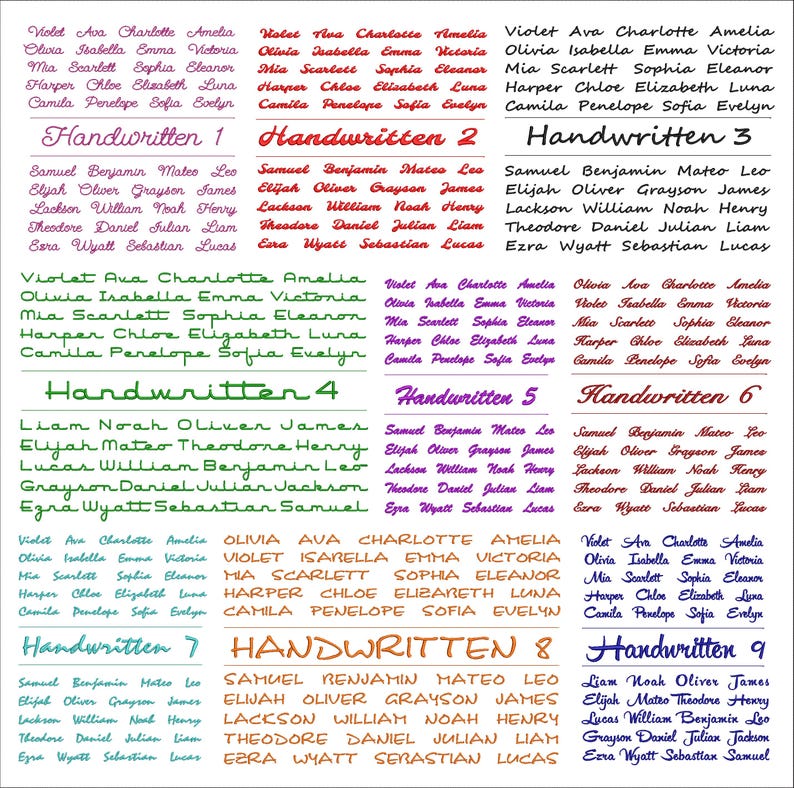 Violet Ava Charlotte Amelia
Olivia Isabella Emma Victoria
Mia Scarlett Sophia Eleanor
Harper Chloe Elizabeth Luna
Camila Penelope Sofia Evelyn
Handwritten 1
Samuel Benjamin Mateo Leo
Elijah Oliver Grayson James
Lackson William Noah Henry
Theodore Daniel Julian Liam
Ezra Wyatt Sebastian Lucas
Violet Ava Charlotte Amelia
Olivia Isabella Emma Victoria
Mia Scarlett Sophia Eleanor
Harper Chloe Elizabeth Luna
Camila Penelope Sofia Evelyn
Handwritten 2
Samuel Benjamin Mateo Leo
Elijah Oliver Grayson James
Lackson William Noah Henry
Theodore Daniel Julian Liam
Ezra Wyatt Sebastian Lucas
Violet Ava Charlotte Amelia
Olivia Isabella Emma Victoria
Mia Scarlett Sophia Eleanor
Harper Chloe Elizabeth Luna
Camila Penelope Sofia Evelyn
Handwritten 3
Samuel Benjamin Mateo Leo
Elijah Oliver Grayson James
Lackson William Noah Henry
Theodore Daniel Julian Liam
Ezra Wyatt Sebastian Lucas
Violet Ava Charlotte Amelia
Olivia Isabella Emma Victoria
Mia Scarlett Sophia Eleanor
Harper Chloe Elizabeth Luna
Camila Penelope Sofia Evelyn
Handwritten 4
Liam Noah Oliver James
Elijah Mateo Theodore Henry
Lucas William Benjamin Leo
Grayson Daniel Julian Jackson
Ezra Wyatt Sebastian Samuel
Violet Ava Charlotte Amelia
Olivia Isabella Emma Victoria
Mia Scarlett Sophia Eleanor
Harper Chloe Elizabeth Luna
Camila Penelope Sofia Evelyn
Handwritten 5
Samuel Benjamin Mateo Leo
Elijah Oliver Grayson James
Lackson William Noah Henry
Theodore Daniel Julian Liam
Ezra Wyatt Sebastian Lucas
Olivia Ava Charlotte Amelia
Violet Isabella Emma Victoria
Mia Scarlett Sophia Eleanor
Harper Chloe Elizabeth Luna
Camila Penelope Sofia Evelyn
Handwritten 6
Samuel Benjamin Mateo Leo
Elijah Oliver Grayson James
Lackson William Noah Henry
Theodore Daniel Julian Liam
Ezra Wyatt Sebastian Lucas
Violet Ava Charlotte Amelia
Olivia Isabella Emma Victoria
Mia Scarlett Sophia Eleanor
Harper Chloe Elizabeth Luna
Camila Penelope Sofia Evelyn
Handwritten 7
Samuel Benjamin Mateo Leo
Elijah Oliver Grayson James
Lackson William Noah Henry
Theodore Daniel Julian Liam
Ezra Wyatt Sebastian Lucas
OLIVIA AVA CHARLOTTE AMELIA
VIOLET ISABELLA EMMA VICTORIA
MIA SCARLETT SOPHIA ELEANOR
HARPER CHLOE ELIZABETH LUNA
CAMILA PENELOPE SOFIA EVELYN
HANDWRITTEN 8
SAMUEL BENJAMIN MATEO LEO
ELIJAH OLIVER GRAYSON JAMES
LACKSON WILLIAM NOAH HENRY
THEODORE DANIEL JULIAN LIAM
EZRA WYATT SEBASTIAN LUCAS
Violet Ava Charlotte Amelia
Olivia Isabella Emma Victoria
Mia Scarlett Sophia Eleanor
Harper Chloe Elizabeth Luna
Camila Penelope Sofia Evelyn
Handwritten 9
Liam Noah Oliver James
Elijah Mateo Theodore Henry
Lucas William Benjamin Leo
Grayson Daniel Julian Jackson
Ezra Wyatt Sebastian Samuel